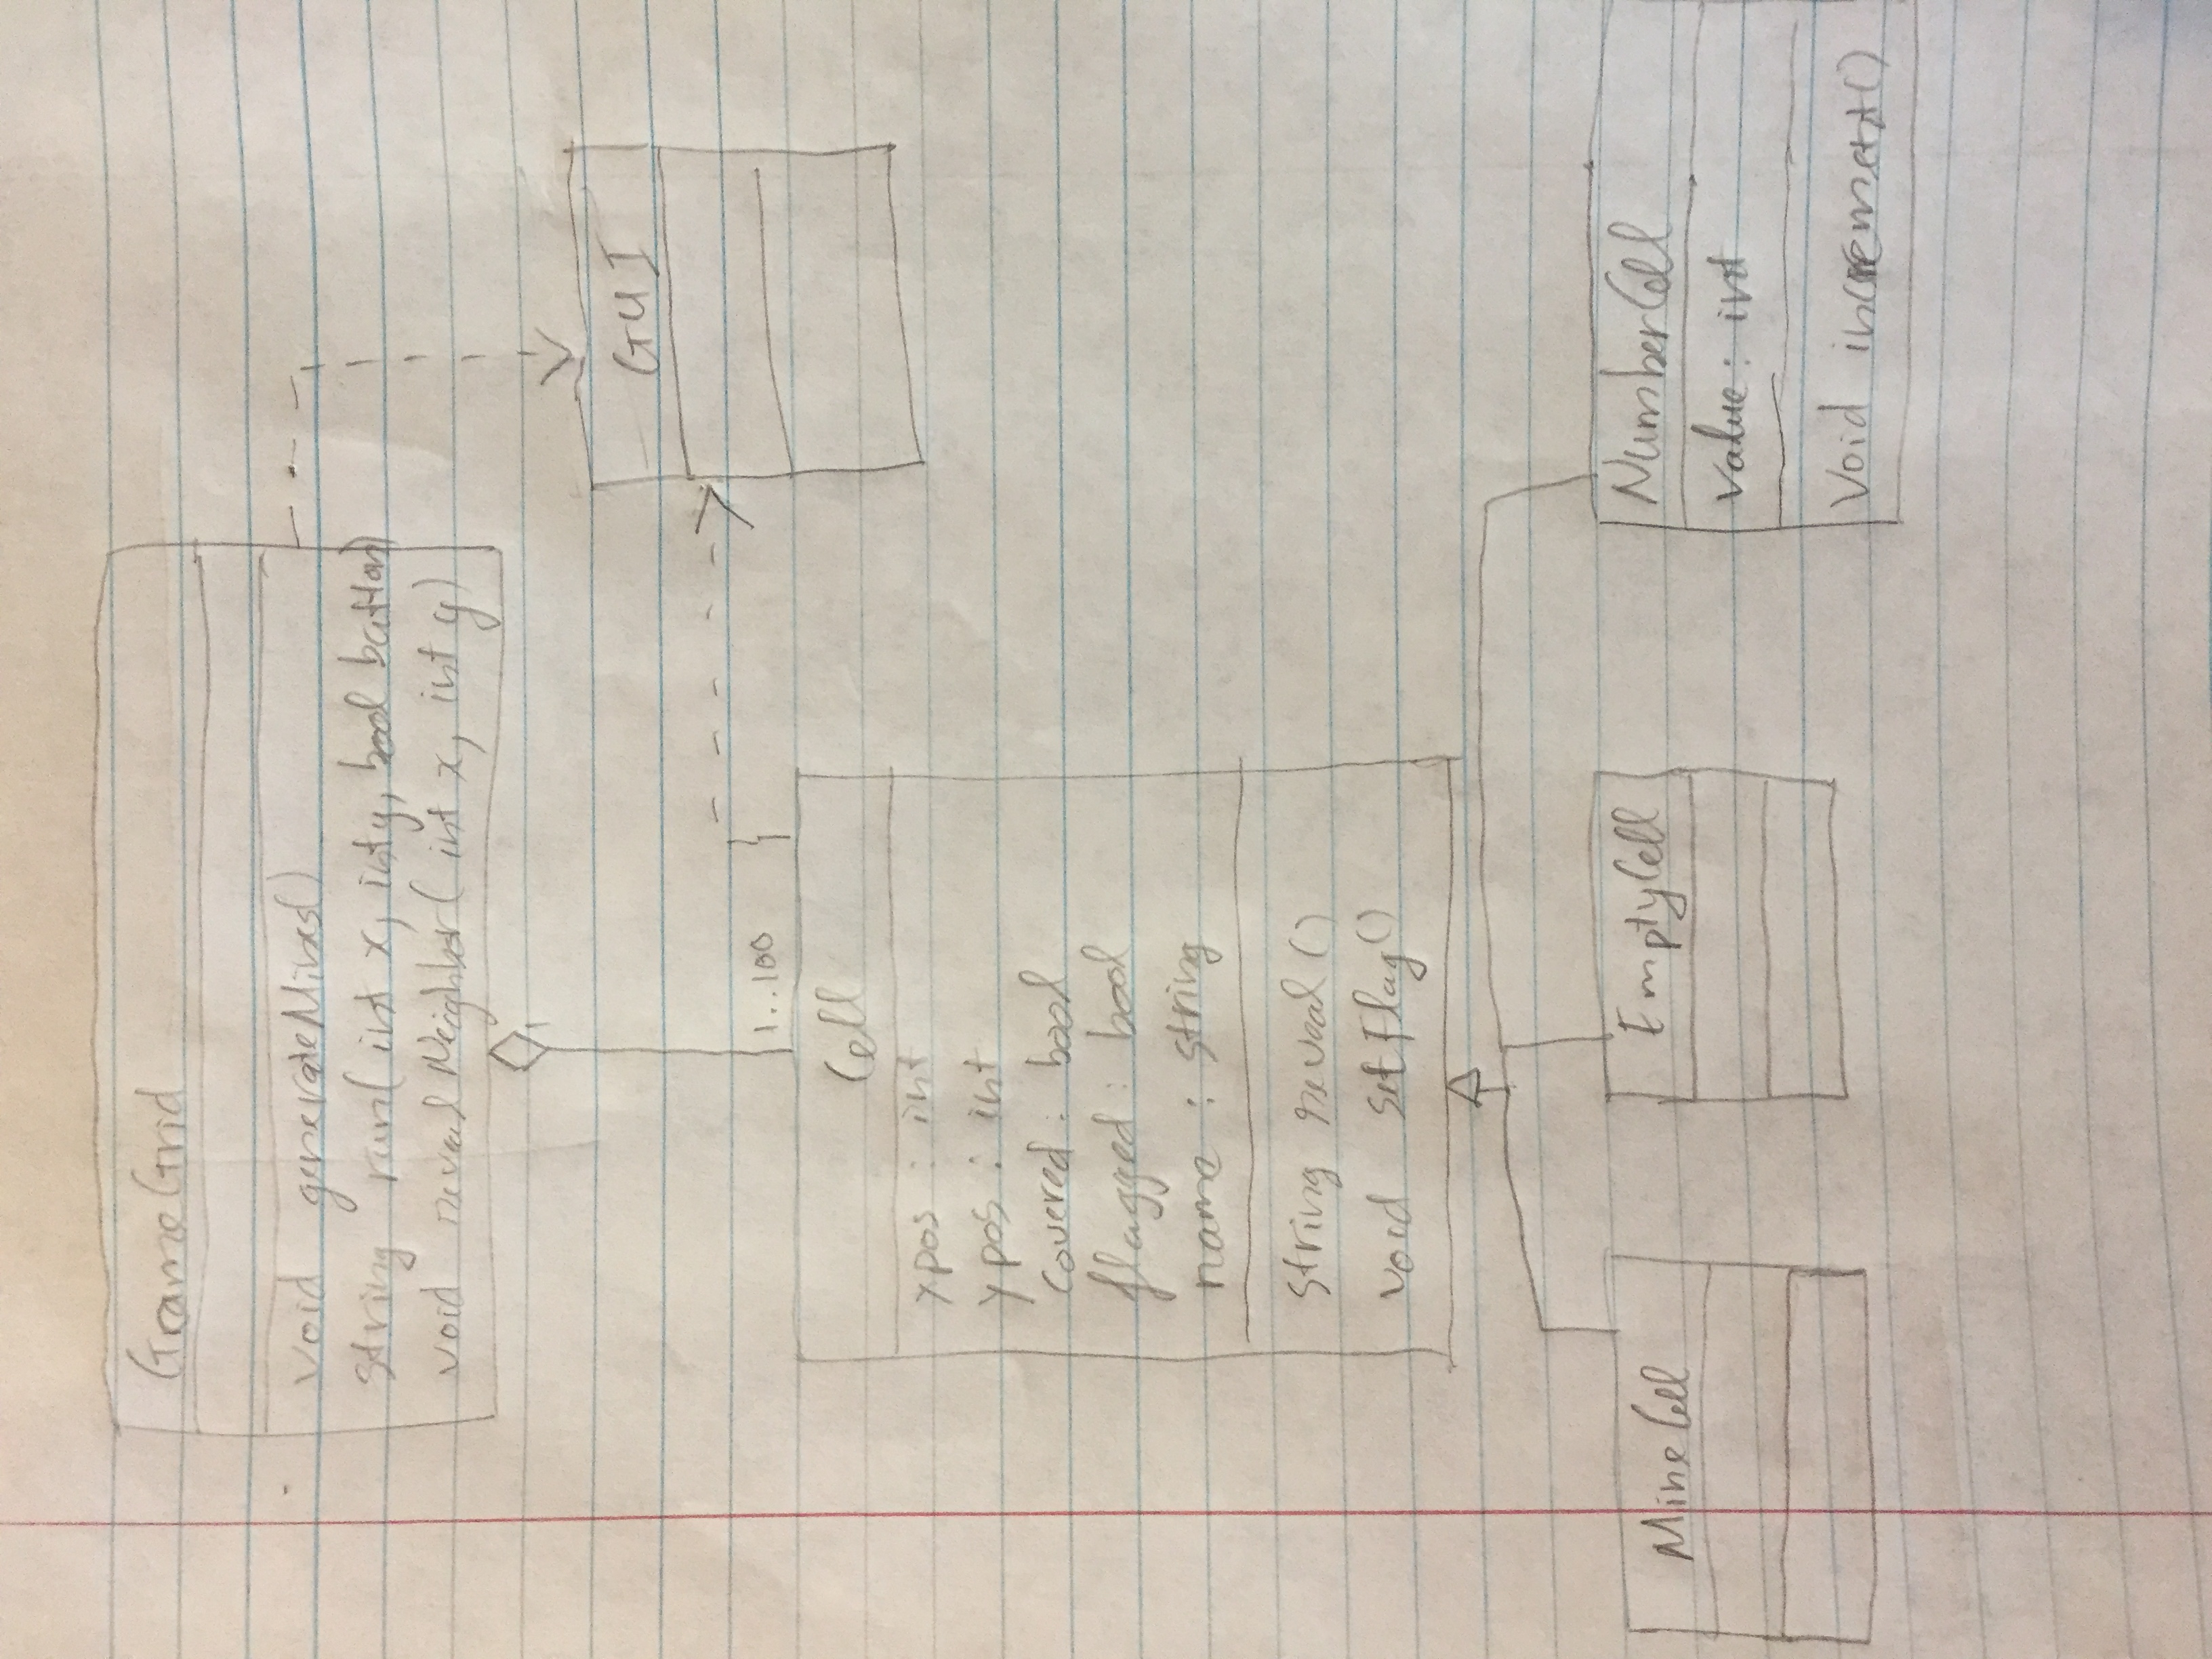 GameGrid
void generateMines()
string run( int x, int y, bool button)
void revealNeighbor( int x, int y)
1
GUI
1..100
Cell
xpos : int
ypos : int
covered : bool
flagged : bool
name : string
string reveal()
void setFlag()
MineCell
EmptyCell
NumberCell
value : int
void increment()